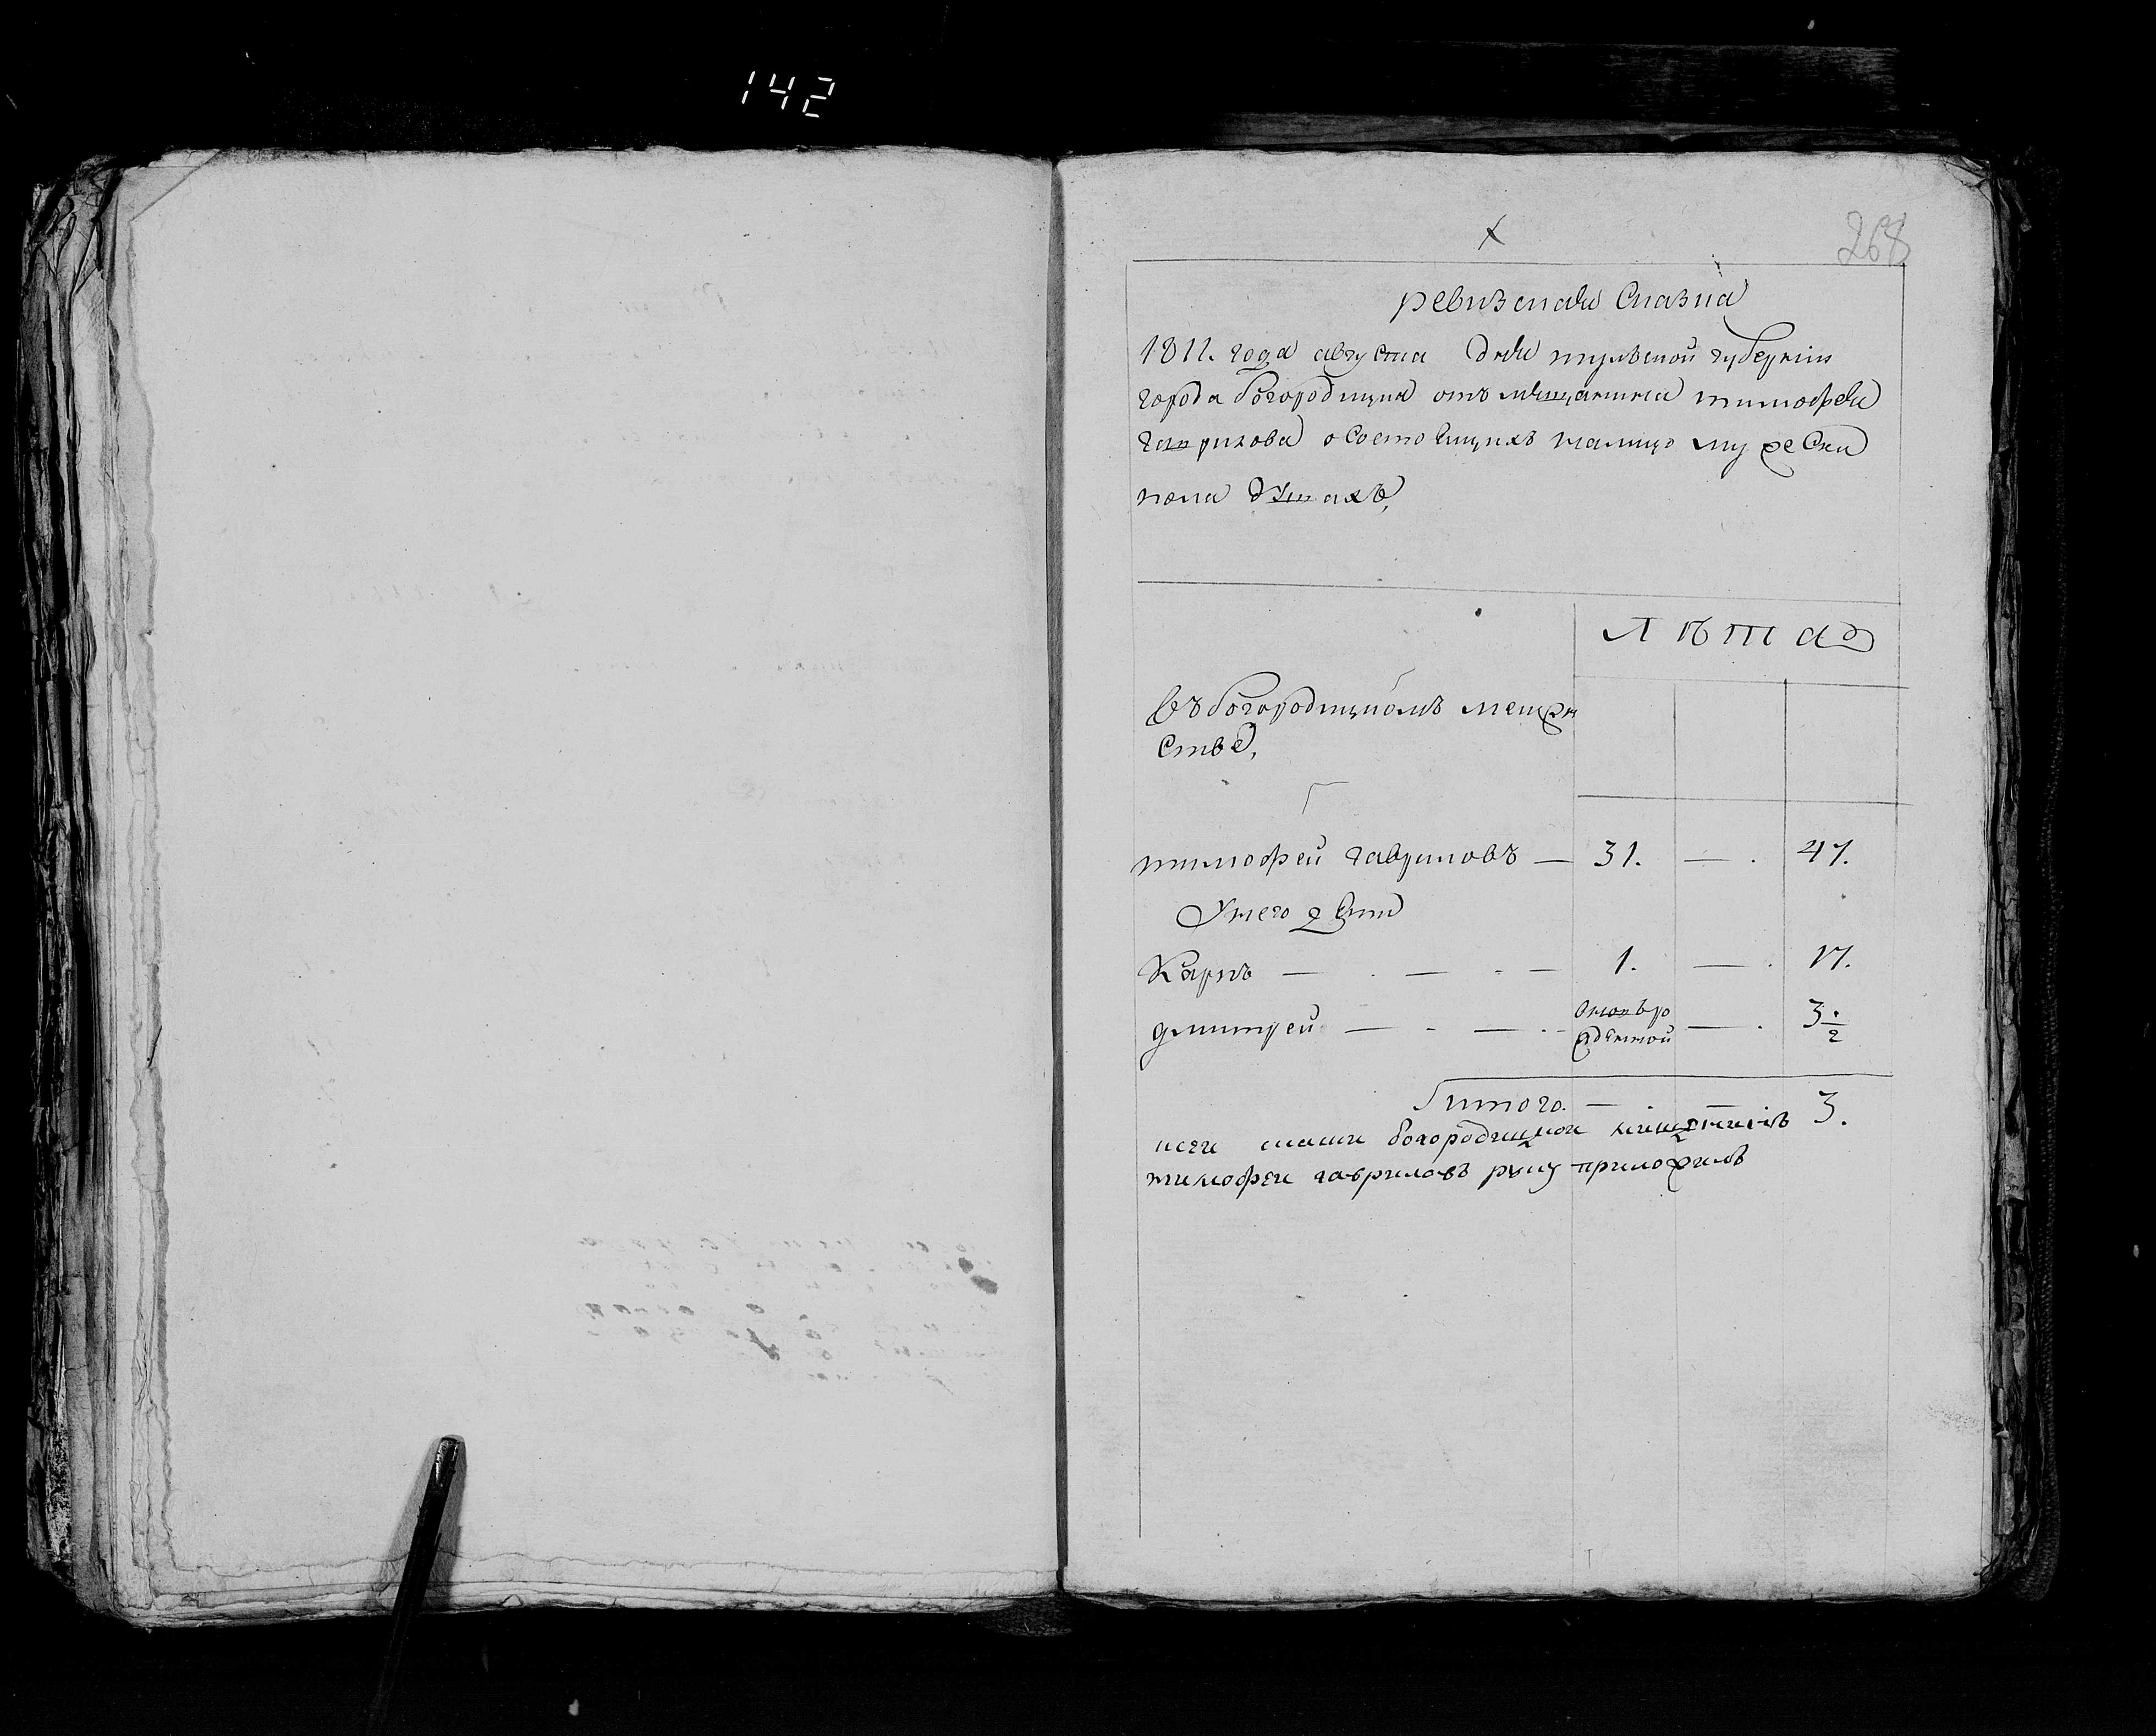 142
268
ревизская Сказка
1811. года августа дня тульской губернии
города богородицка отъ мѣщанина тимофея
гаврилова о Состоящихъ налицо мужеска
пола душахъ,
Лѣта
въ богородицкомъ мещан
ствѣ,
тимофей гавриловъ — 31. — . 47.
У него
Карпъ — . — . — 1. — . 17.
дмитрей — . — . — вновьро жденной — . 3 1/2
итого. — . — 3.
к сеи скаски богородицкои мищанинъ
тимофеи гавриловъ руку приложилъ